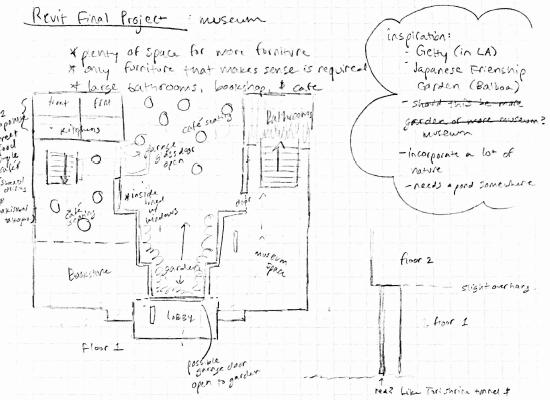 Revit Final Project : museum
* plenty of space for more furniture
* only furniture that makes sense is required
* large bathrooms, bookshop, & cafe
inspiration:
- Getty (in LA)
- Japanese Frienship
Garden (Balboa)
- should this be more
garden or more museum?
museum
- Incorporate a lot of
nature
- needs a pond somewhere
front
kitchens
café seating
Bathrooms
garage
glass door
open
* inside
lined w/
windows
café
seating
door
garden
museum
space
Bookstore
LOBBY
Floor 1
possible
garage door
open to garden
floor 2
slight overhang
floor 1
red? Like Torii shrine tunnel